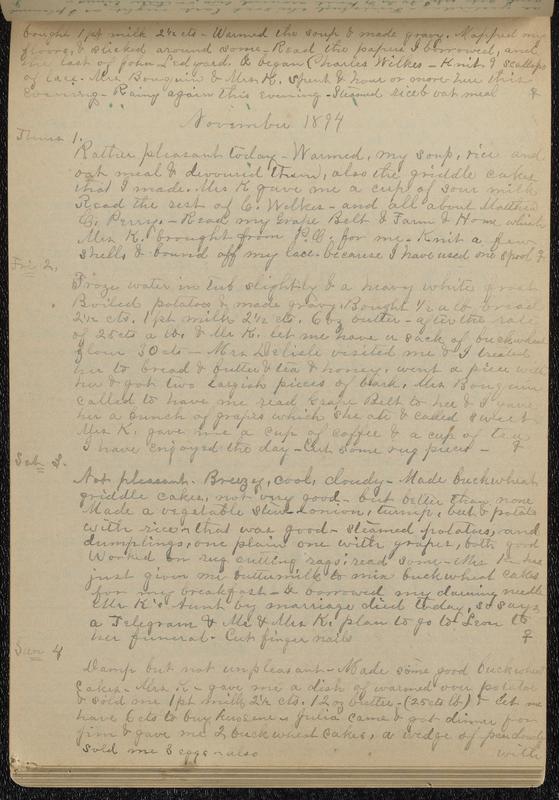 bought 1 pt milk 2½ cts - Warmed the soup & made gravy. Mopped my
floors, & slicked around some - Read the papers I borrowed, and
the last of John Ledyard & began Charles Wilkes - Knit 7 scallops
of lace. Mrs Bouquin & Mrs K. spent ½ hour or more here this
evening - Rainy again this evening - Steamed rice & oat meal
November 1894
Thurs 1.
Rather pleasant today - Warmed, my soup, rice and
oat meal & devoured them, also the griddle cakes
that I made. Mrs K gave me a cup of sour milk
Read the rest of C. Wilkes - and all about Matthew
C. Perry. - Read my Grape Belt & Farm & Home which
Mrs K. brought from P.O. for me - Knit a few
shells & bound off my lace - because I have used one spool
Fri 2.
Froze water in tub slightly & a heavy white frost
Boiled potatoes & made gravy. Bought ½ a lb bread
2½ cts. 1 pt milk 2½ cts. 6 oz butter - after the rate
of 25 cts a lb. & Mr K. let me have a sack of buckwheat
flour 30 cts - Mrs Delisle visited me & I treated
her to bread & butter & tea & honey. went a piece with
her & got two largish pieces of bark. Mrs Bouquin
called to have me read Grape Belt to her & I gave
her a bunch of grapes which she ate & called sweet
Mrs K. gave me a cup of coffee & a cup of tea
I have enjoyed the day - Cut some rug pieces -
Sat 3.
Not pleasant. Breezy, cool, cloudy - Made buckwheat
griddle cakes, not very good - but better than none
Made a vegetable stew - onion, turnip, & potato
with rice - that was good - steamed potatoes, and
dumplings, one plain one with grapes, both good
Worked on rug cutting rags; read some - Mrs K has
just given me buttermilk to mix buckwheat cakes
for my breakfast - & borrowed my darning needle
Mr K's Aunt by marriage died today, so says
a Telegram & Mr & Mrs K. plan to go to Leon to
her funeral - Cut finger nails
Sun 4
Damp but not unpleasant - Made some good buckwheat
cakes - Mrs K - gave me a dish of warmed over potatoe
& sold me 1 pt milk, 2½ cts. 12 oz butter - (25 cts lb) & let me
have 6 cts to buy kerosene - Julia came & got dinner for
Jim & gave me 2 buckwheat cakes, a wedge of
sold me 3 eggs - also with